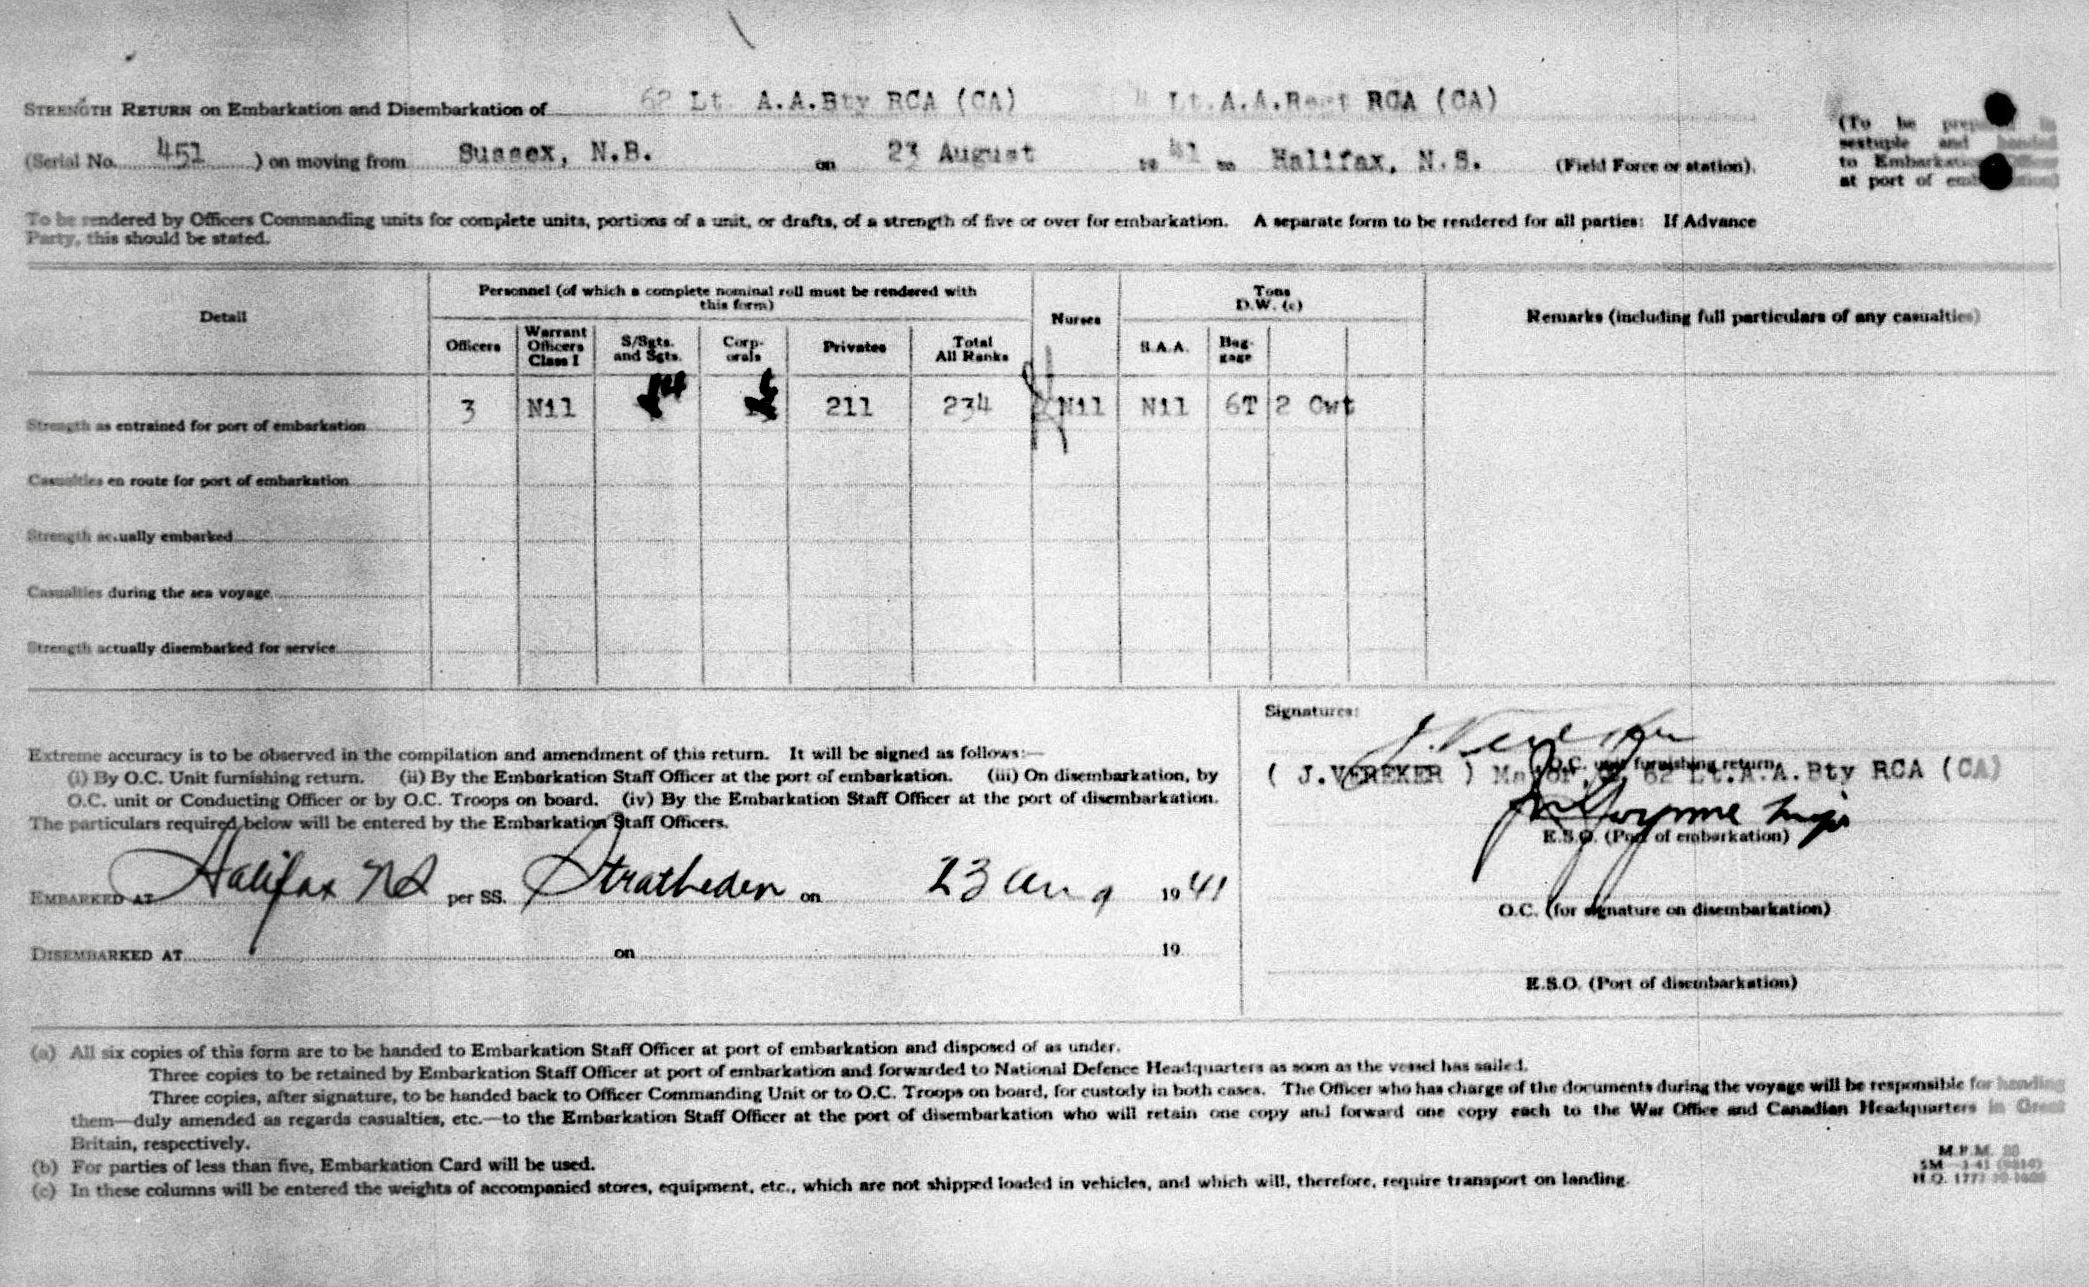 STRENGTH RETURN on Embarkation and Disembarkation of 62 Lt. A.A.Bty RCA (CA) 4 Lt.A.A.Regt RCA (CA)
(Serial No. 451 ) on moving from Sussex, N.B. on 23 August 19 41 to Halifax, N.S. (Field Force or station).
(To be prepared in
sextuple and handed
to Embarkation Officer
at port of embarkation)
To be rendered by Officers Commanding units for complete units, portions of a unit, or drafts, of a strength of five or over for embarkation. A separate form to be rendered for all parties: If Advance
Party, this should be stated.
Detail
Personnel (of which a complete nominal roll must be rendered with
this form)
Nurses
Tons
D.W. (c)
Remarks (including full particulars of any casualties)
Officers
Warrant
Officers
Class I
S/Sgts.
and Sgts.
Corp-
orals
Privates
Total
All Ranks
S.A.A.
Bag-
gage
Strength as entrained for port of embarkation 3 Nil 14 6 211 234 Nil Nil 6T 2 Cwt
Casualties en route for port of embarkation
Strength actually embarked
Casualties during the sea voyage
Strength actually disembarked for service
Extreme accuracy is to be observed in the compilation and amendment of this return. It will be signed as follows:—
(i) By O.C. Unit furnishing return. (ii) By the Embarkation Staff Officer at the port of embarkation. (iii) On disembarkation, by
O.C. unit or Conducting Officer or by O.C. Troops on board. (iv) By the Embarkation Staff Officer at the port of disembarkation.
The particulars required below will be entered by the Embarkation Staff Officers.
EMBARKED AT Halifax NS per SS. Stratheden on 23 Aug 1941
DISEMBARKED AT on 19
Signatures:
J. Vereker
O.C. unit furnishing return
( J.VEREKER ) Major, 62 Lt.A.A.Bty RCA (CA)
Gwynne Major
E.S.O. (Port of embarkation)
O.C. (for signature on disembarkation)
E.S.O. (Port of disembarkation)
(a) All six copies of this form are to be handed to Embarkation Staff Officer at port of embarkation and disposed of as under.
Three copies to be retained by Embarkation Staff Officer at port of embarkation and forwarded to National Defence Headquarters as soon as the vessel has sailed.
Three copies, after signature, to be handed back to Officer Commanding Unit or to O.C. Troops on board, for custody in both cases. The Officer who has charge of the documents during the voyage will be responsible for handing
them—duly amended as regards casualties, etc.—to the Embarkation Staff Officer at the port of disembarkation who will retain one copy and forward one copy each to the War Office and Canadian Headquarters in Great
Britain, respectively.
(b) For parties of less than five, Embarkation Card will be used.
(c) In these columns will be entered the weights of accompanied stores, equipment, etc., which are not shipped loaded in vehicles, and which will, therefore, require transport on landing.
M.F.M.
5M
H.Q. 1772